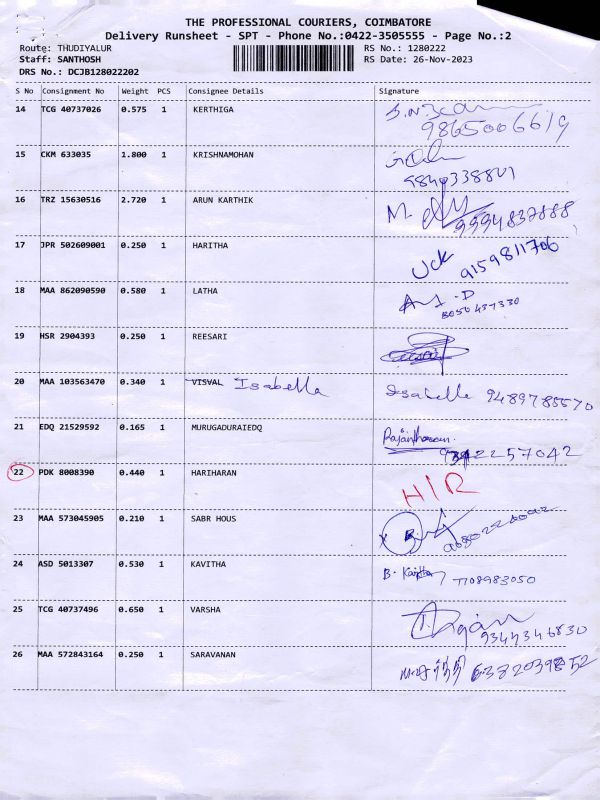 THE PROFESSIONAL COURIERS, COIMBATORE
Delivery Runsheet - SPT - Phone No.:0422-3505555 - Page No.:2
Route: THUDIYALUR RS No.: 1280222
Staff: SANTHOSH RS Date: 26-Nov-2023
DRS No.: DCJB128022202
S No Consignment No Weight PCS Consignee Details Signature
14 TCG 40737026 0.575 1 KERTHIGA
9865006619
15 CKM 633035 1.800 1 KRISHNAMOHAN
16 TRZ 15630516 2.720 1 ARUN KARTHIK
17 JPR 502609001 0.250 1 HARITHA
9159811706
18 MAA 862090590 0.580 1 LATHA
8056437330
19 HSR 2904393 0.250 1 REESARI
20 MAA 103563470 0.340 1 VISVAL Isabella 9489785570
21 EDQ 21529592 0.165 1 MURUGADURAIEDQ
22 PDK 8008390 0.440 1 HARIHARAN H/R
23 MAA 573045905 0.210 1 SABR HOUS
24 ASD 5013307 0.530 1 KAVITHA
7708983050
25 TCG 40737496 0.650 1 VARSHA
9344346830
26 MAA 572843164 0.250 1 SARAVANAN 6382039852